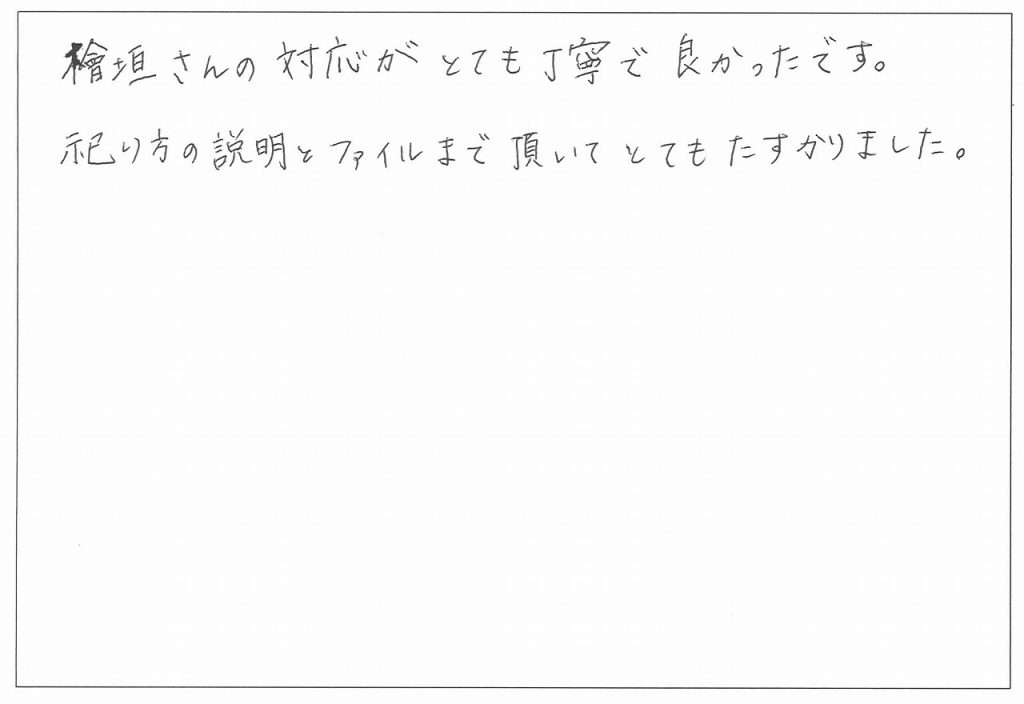 檜垣さんの対応がとても丁寧で良かったです。
祀り方の説明とファイルまで頂いてとてもたすかりました。